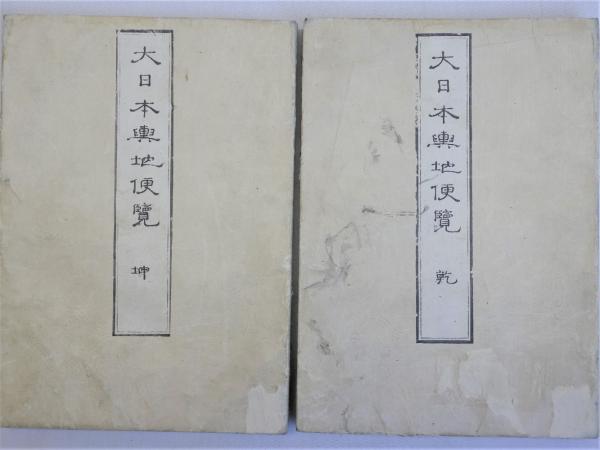 大日本輿地便覽 乾
大日本輿地便覽 坤